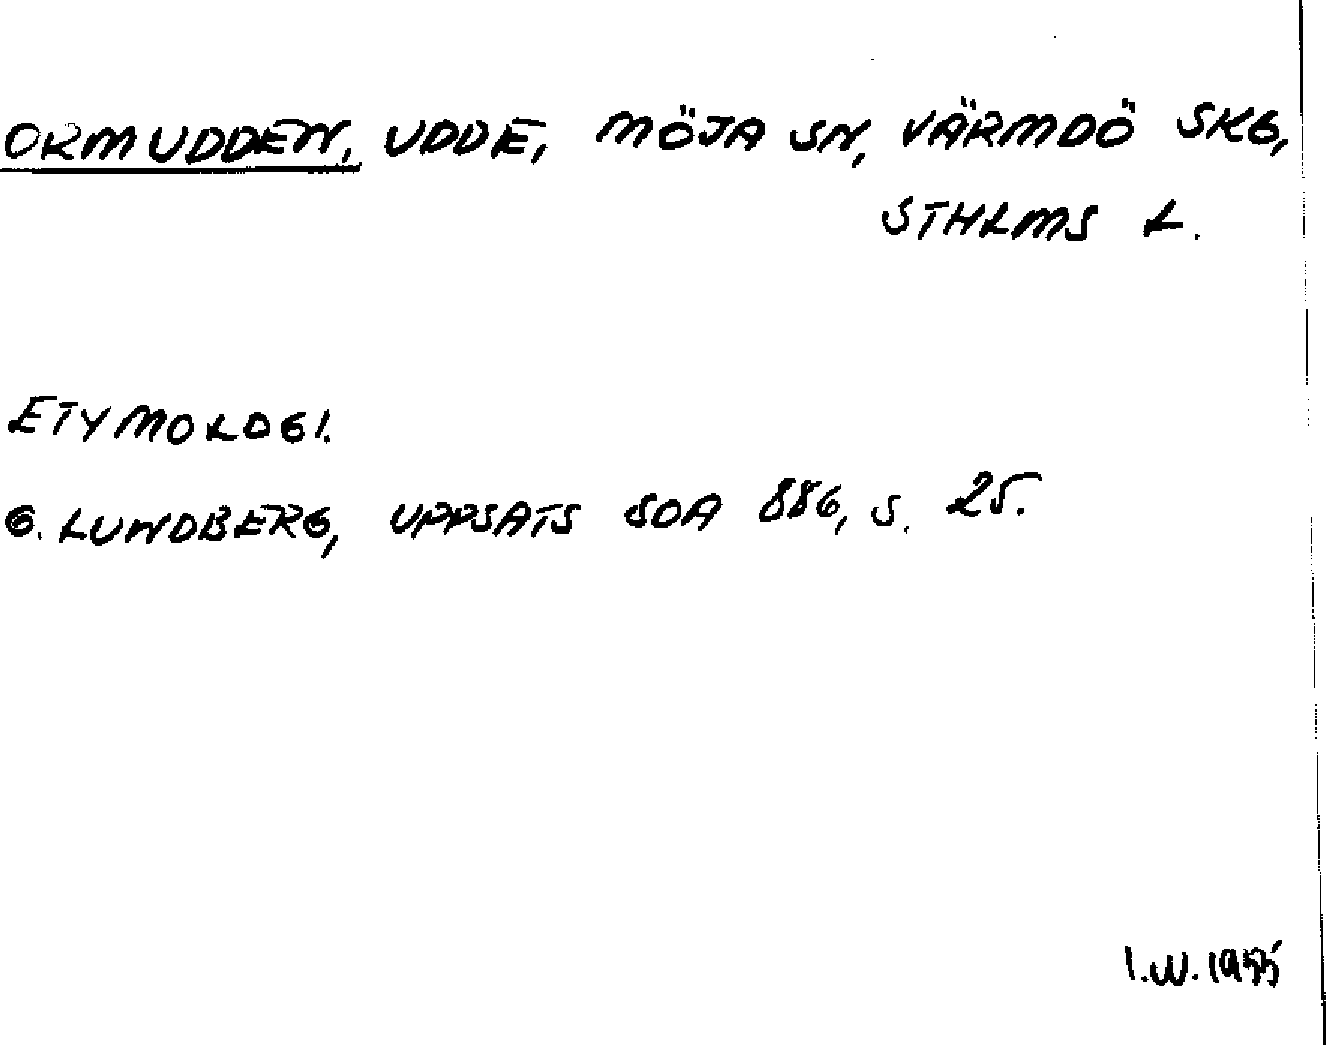 ORMUDDEN, UDDE, MÖJA SN, VÄRMDÖ SKG,
STHLMS L.
ETYMOLOGI.
G. LUNDBERG, UPPSATS SOA 886, S. 25.
I.W. 1955